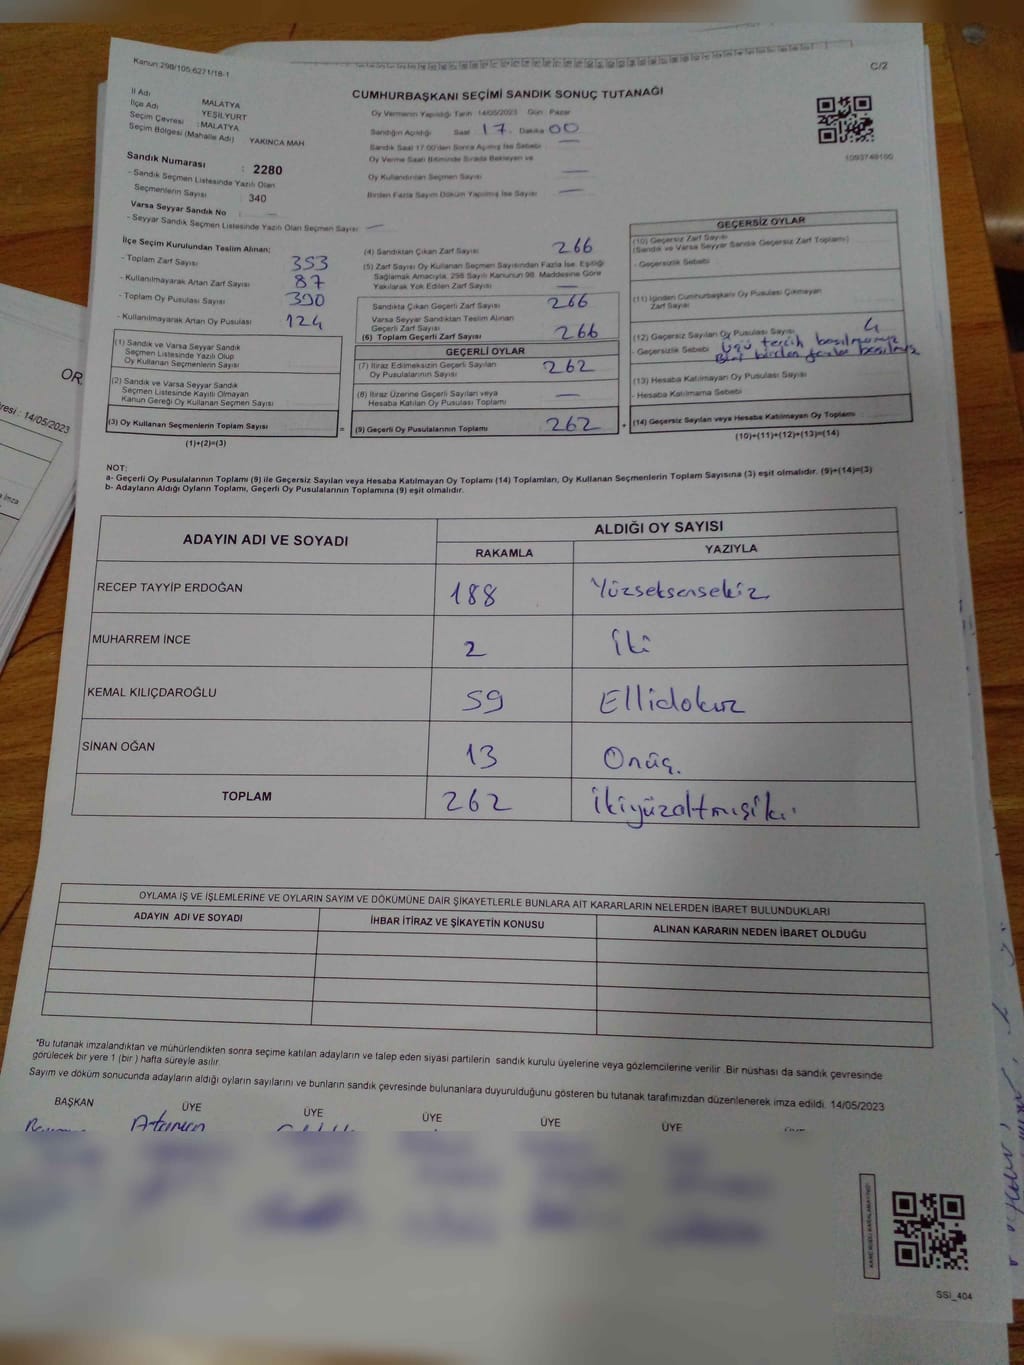 Kanun:298/105-6271/18-1
C/2
CUMHURBAŞKANI SEÇİMİ SANDIK SONUÇ TUTANAĞI
İl Adı : MALATYA
İlçe Adı : YEŞİLYURT
Seçim Çevresi : MALATYA
Seçim Bölgesi (Mahalle Adı) YAKINCA MAH
Sandık Numarası : 2280
- Sandık Seçmen Listesinde Yazılı Olan
Seçmenlerin Sayısı : 340
Varsa Seyyar Sandık No :
- Seyyar Sandık Seçmen Listesinde Yazılı Olan Seçmen Sayısı
Oy Vermenin Yapıldığı Tarih 14/05/2023 Gün: Pazar
Sandığın Açıldığı Saat 17. Dakika 00
Sandık Saat 17:00'den Sonra Açılmış İse Sebebi
Oy Verme Saati Bitiminde Sırada Bekleyen ve
Oy Kullandırılan Seçmen Sayısı
Birden Fazla Sayım Döküm Yapılmış İse Sayısı
İlçe Seçim Kurulundan Teslim Alınan;
- Toplam Zarf Sayısı 353
- Kullanılmayarak Artan Zarf Sayısı 87
- Toplam Oy Pusulası Sayısı 390
- Kullanılmayarak Artan Oy Pusulası 124
(1) Sandık ve Varsa Seyyar Sandık
Seçmen Listesinde Yazılı Olup
Oy Kullanan Seçmenlerin Sayısı
(2) Sandık ve Varsa Seyyar Sandık
Seçmen Listesinde Kayıtlı Olmayan
Kanun Gereği Oy Kullanan Seçmen Sayısı
(3) Oy Kullanan Seçmenlerin Toplam Sayısı
(1)+(2)=(3)
(4) Sandıktan Çıkan Zarf Sayısı 266
(5) Zarf Sayısı Oy Kullanan Seçmen Sayısından Fazla İse, Eşitliği
Sağlamak Amacıyla, 298 Sayılı Kanunun 98. Maddesine Göre
Yakılarak Yok Edilen Zarf Sayısı
Sandıkta Çıkan Geçerli Zarf Sayısı 266
Varsa Seyyar Sandıktan Teslim Alınan
Geçerli Zarf Sayısı
(6) Toplam Geçerli Zarf Sayısı 266
GEÇERLİ OYLAR
(7) İtiraz Edilmeksizin Geçerli Sayılan
Oy Pusulalarının Sayısı 262
(8) İtiraz Üzerine Geçerli Sayılan veya
Hesaba Katılan Oy Pusulası Toplamı
(9) Geçerli Oy Pusulalarının Toplamı 262
GEÇERSİZ OYLAR
(10) Geçersiz Zarf Sayısı
(Sandık ve Varsa Seyyar Sandık Geçersiz Zarf Toplamı)
- Geçersizlik Sebebi
(11) İçinden Cumhurbaşkanı Oy Pusulası Çıkmayan
Zarf Sayısı
(12) Geçersiz Sayılan Oy Pusulası Sayısı 4
- Geçersizlik Sebebi Üçü tercih basılmamış
Biri birden fazla basılmış
(13) Hesaba Katılmayan Oy Pusulası Sayısı
- Hesaba Katılmama Sebebi
(14) Geçersiz Sayılan veya Hesaba Katılmayan Oy Toplamı
(10)+(11)+(12)+(13)=(14)
NOT:
a- Geçerli Oy Pusulalarının Toplamı (9) ile Geçersiz Sayılan veya Hesaba Katılmayan Oy Toplamı (14) Toplamları, Oy Kullanan Seçmenlerin Toplam Sayısına (3) eşit olmalıdır. (9)+(14)=(3)
b- Adayların Aldığı Oyların Toplamı, Geçerli Oy Pusulalarının Toplamına (9) eşit olmalıdır.
ADAYIN ADI VE SOYADI ALDIĞI OY SAYISI
RAKAMLA YAZIYLA
RECEP TAYYİP ERDOĞAN 188 Yüzseksensekiz
MUHARREM İNCE 2 İki
KEMAL KILIÇDAROĞLU 59 Ellidokuz
SİNAN OĞAN 13 Onüç.
TOPLAM 262 İkiyüzaltmışiki
OYLAMA İŞ VE İŞLEMLERİNE VE OYLARIN SAYIM VE DÖKÜMÜNE DAİR ŞİKAYETLERLE BUNLARA AİT KARARLARIN NELERDEN İBARET BULUNDUKLARI
ADAYIN ADI VE SOYADI İHBAR İTİRAZ VE ŞİKAYETİN KONUSU ALINAN KARARIN NEDEN İBARET OLDUĞU
*Bu tutanak imzalandıktan ve mühürlendikten sonra seçime katılan adayların ve talep eden siyasi partilerin sandık kurulu üyelerine veya gözlemcilerine verilir .Bir nüshası da sandık çevresinde
görülecek bir yere 1 (bir ) hafta süreyle asılır.
Sayım ve döküm sonucunda adayların aldığı oyların sayılarını ve bunların sandık çevresinde bulunanlara duyurulduğunu gösteren bu tutanak tarafımızdan düzenlenerek imza edildi. 14/05/2023
BAŞKAN ÜYE ÜYE ÜYE ÜYE ÜYE
SSI_404
OR
resi : 14/05/2023